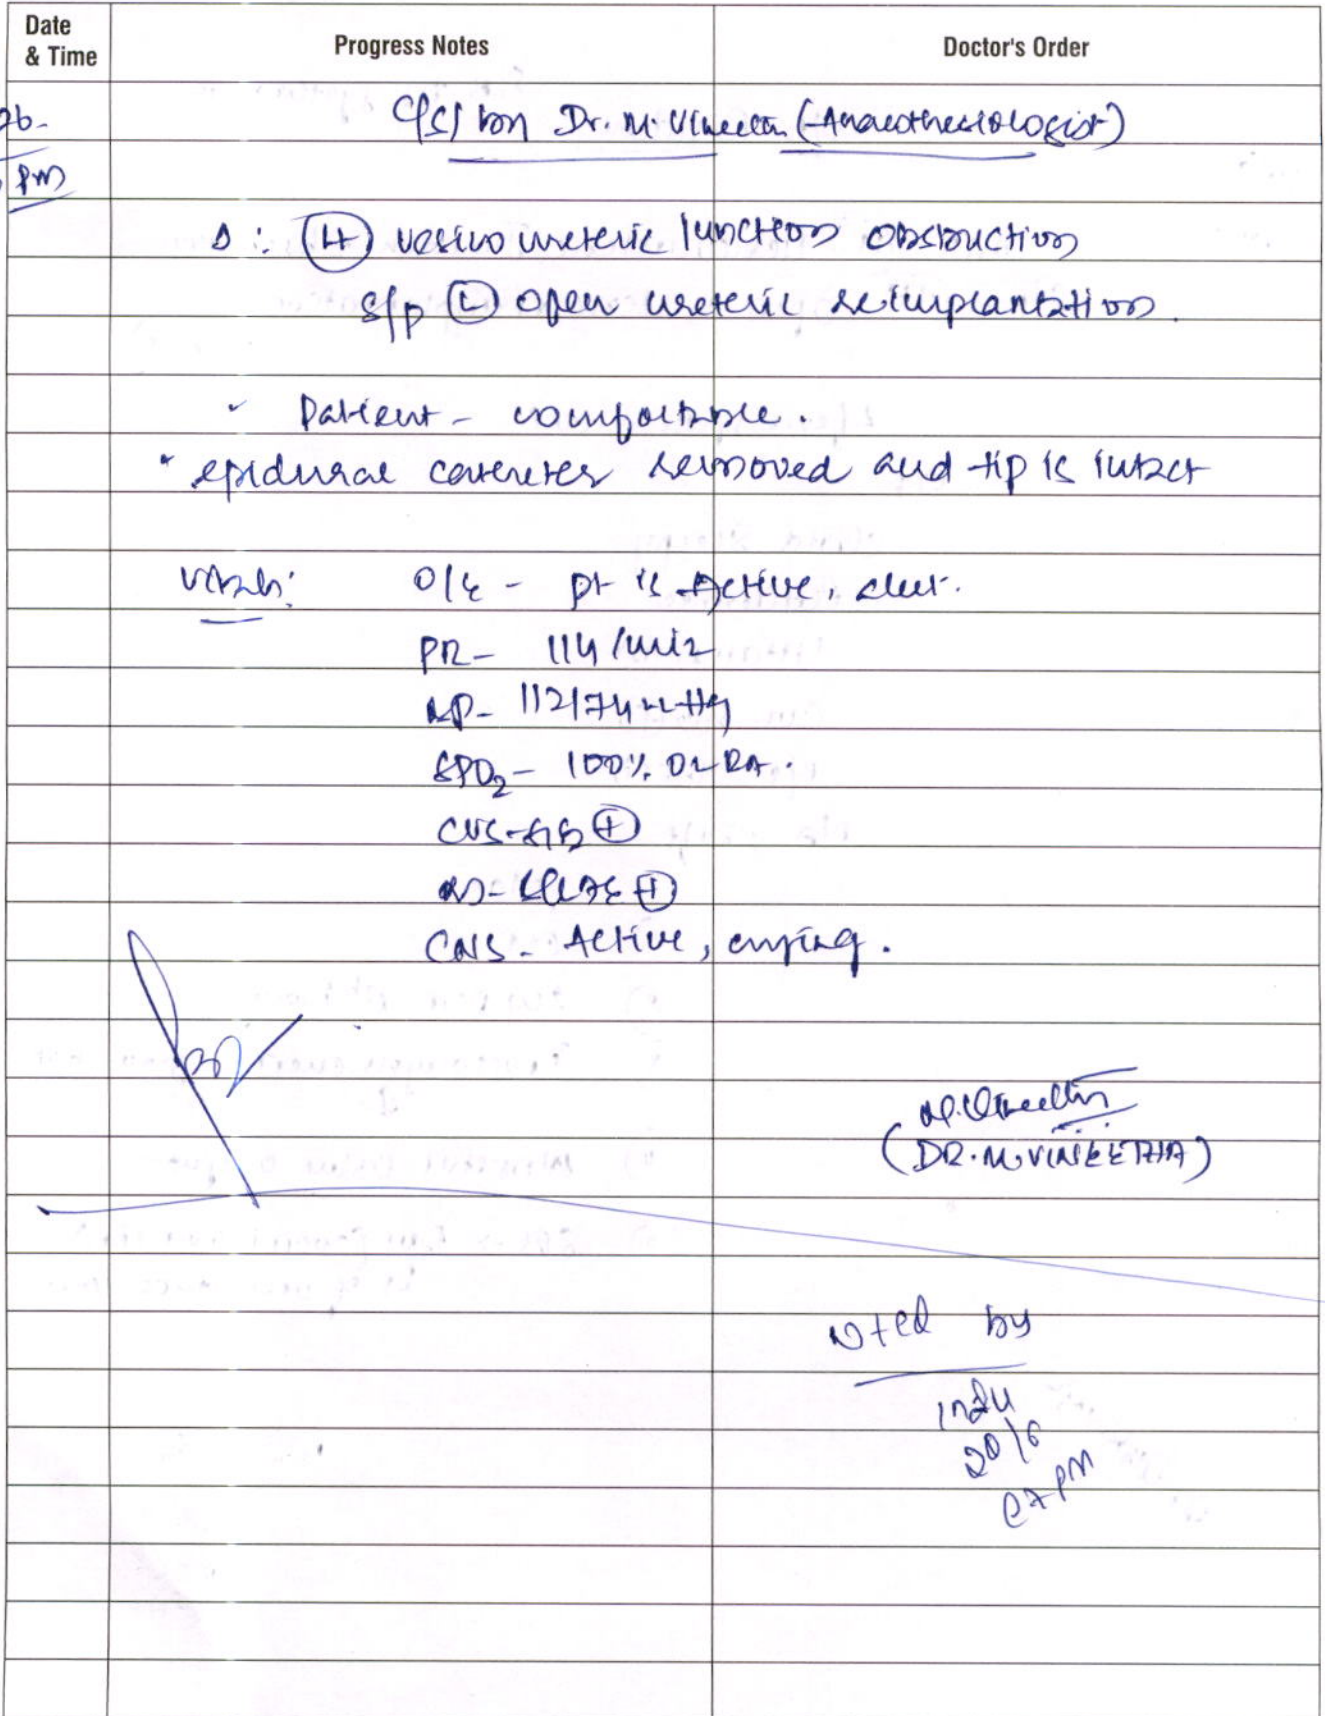 Date & Time
Progress Notes
Doctor's Order
26-
PM
C/S/ by Dr. M. Vineetha (Anaesthesiologist)
Δ: Lt vesico ureteric junction obstruction
S/p L open ureteric reimplantation.
Patient - comfortable.
epidural catheter removed and tip is intact
Vitals: O/E - pt is Active, alert.
PR- 114/min
BP- 112/74 mmHg
SPO2- 100% on RA.
CVS-S1S2 +
RS- BLAE +
CNS- Active, crying.
M. Vineetha
(DR. M. VINEETHA)
Noted by
Indu
20/6
@7PM